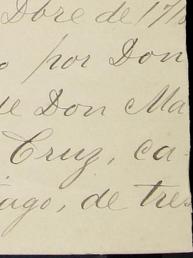 Dbre de 17
o por Don
de Don Ma
Cruz, ca-
iago, de tres